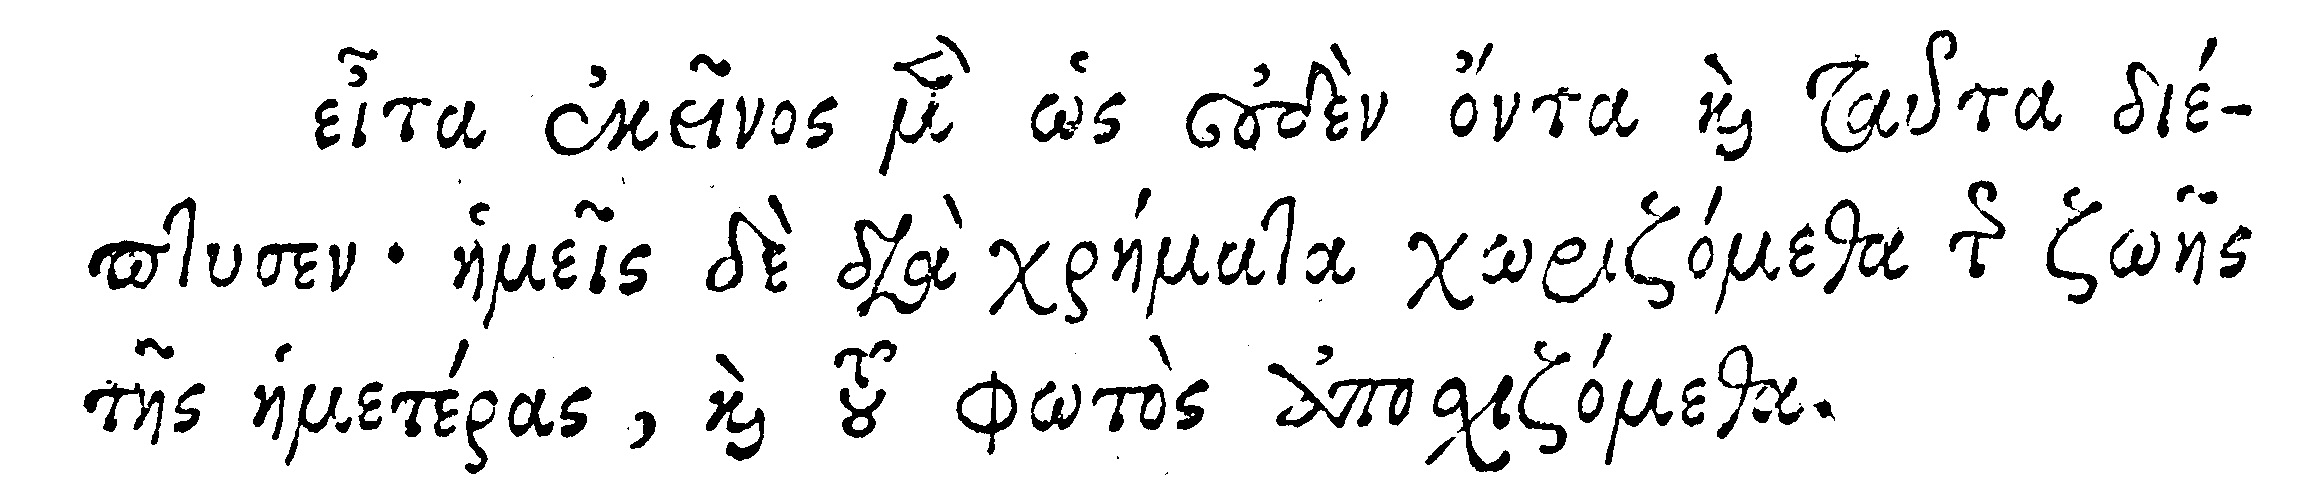 εἶτα ἐκεῖνος μὲν ὡς οὐδὲν ὄντα καὶ ταῦτα διέ-
πτυσεν· ἡμεῖς δὲ διὰ χρήματα χωριζόμεθα τῆς ζωῆς
τῆς ἡμετέρας, καὶ τοῦ φωτὸς ἀποσχιζόμεθα.